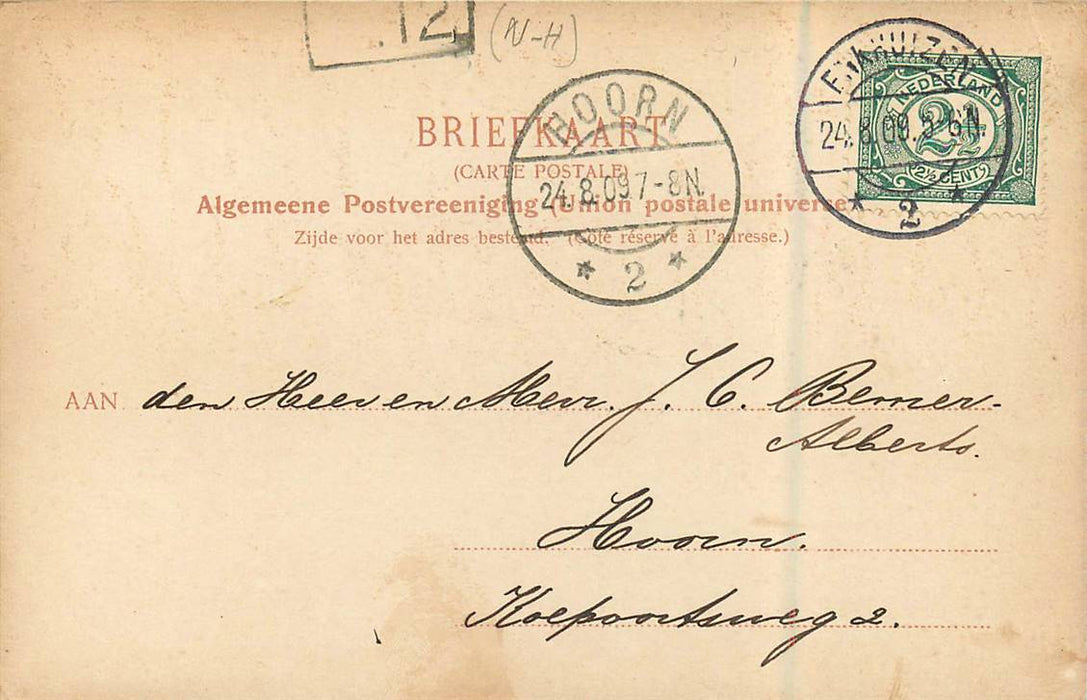 .12
(N-H)
ENKHUIZEN
24.8.09.5-6N.
2
NEDERLAND
2½
2½ CENT
HOORN
24.8.09 7-8N.
2
BRIEFKAART
(CARTE POSTALE)
Algemeene Postvereeniging (Union postale universe
Zijde voor het adres bestemd. (Côté réservé à l'adresse.)
AAN den Heer en Mevr. J. C. Bemer-
Alberts.
Hoorn.
Koepoortsweg 2.